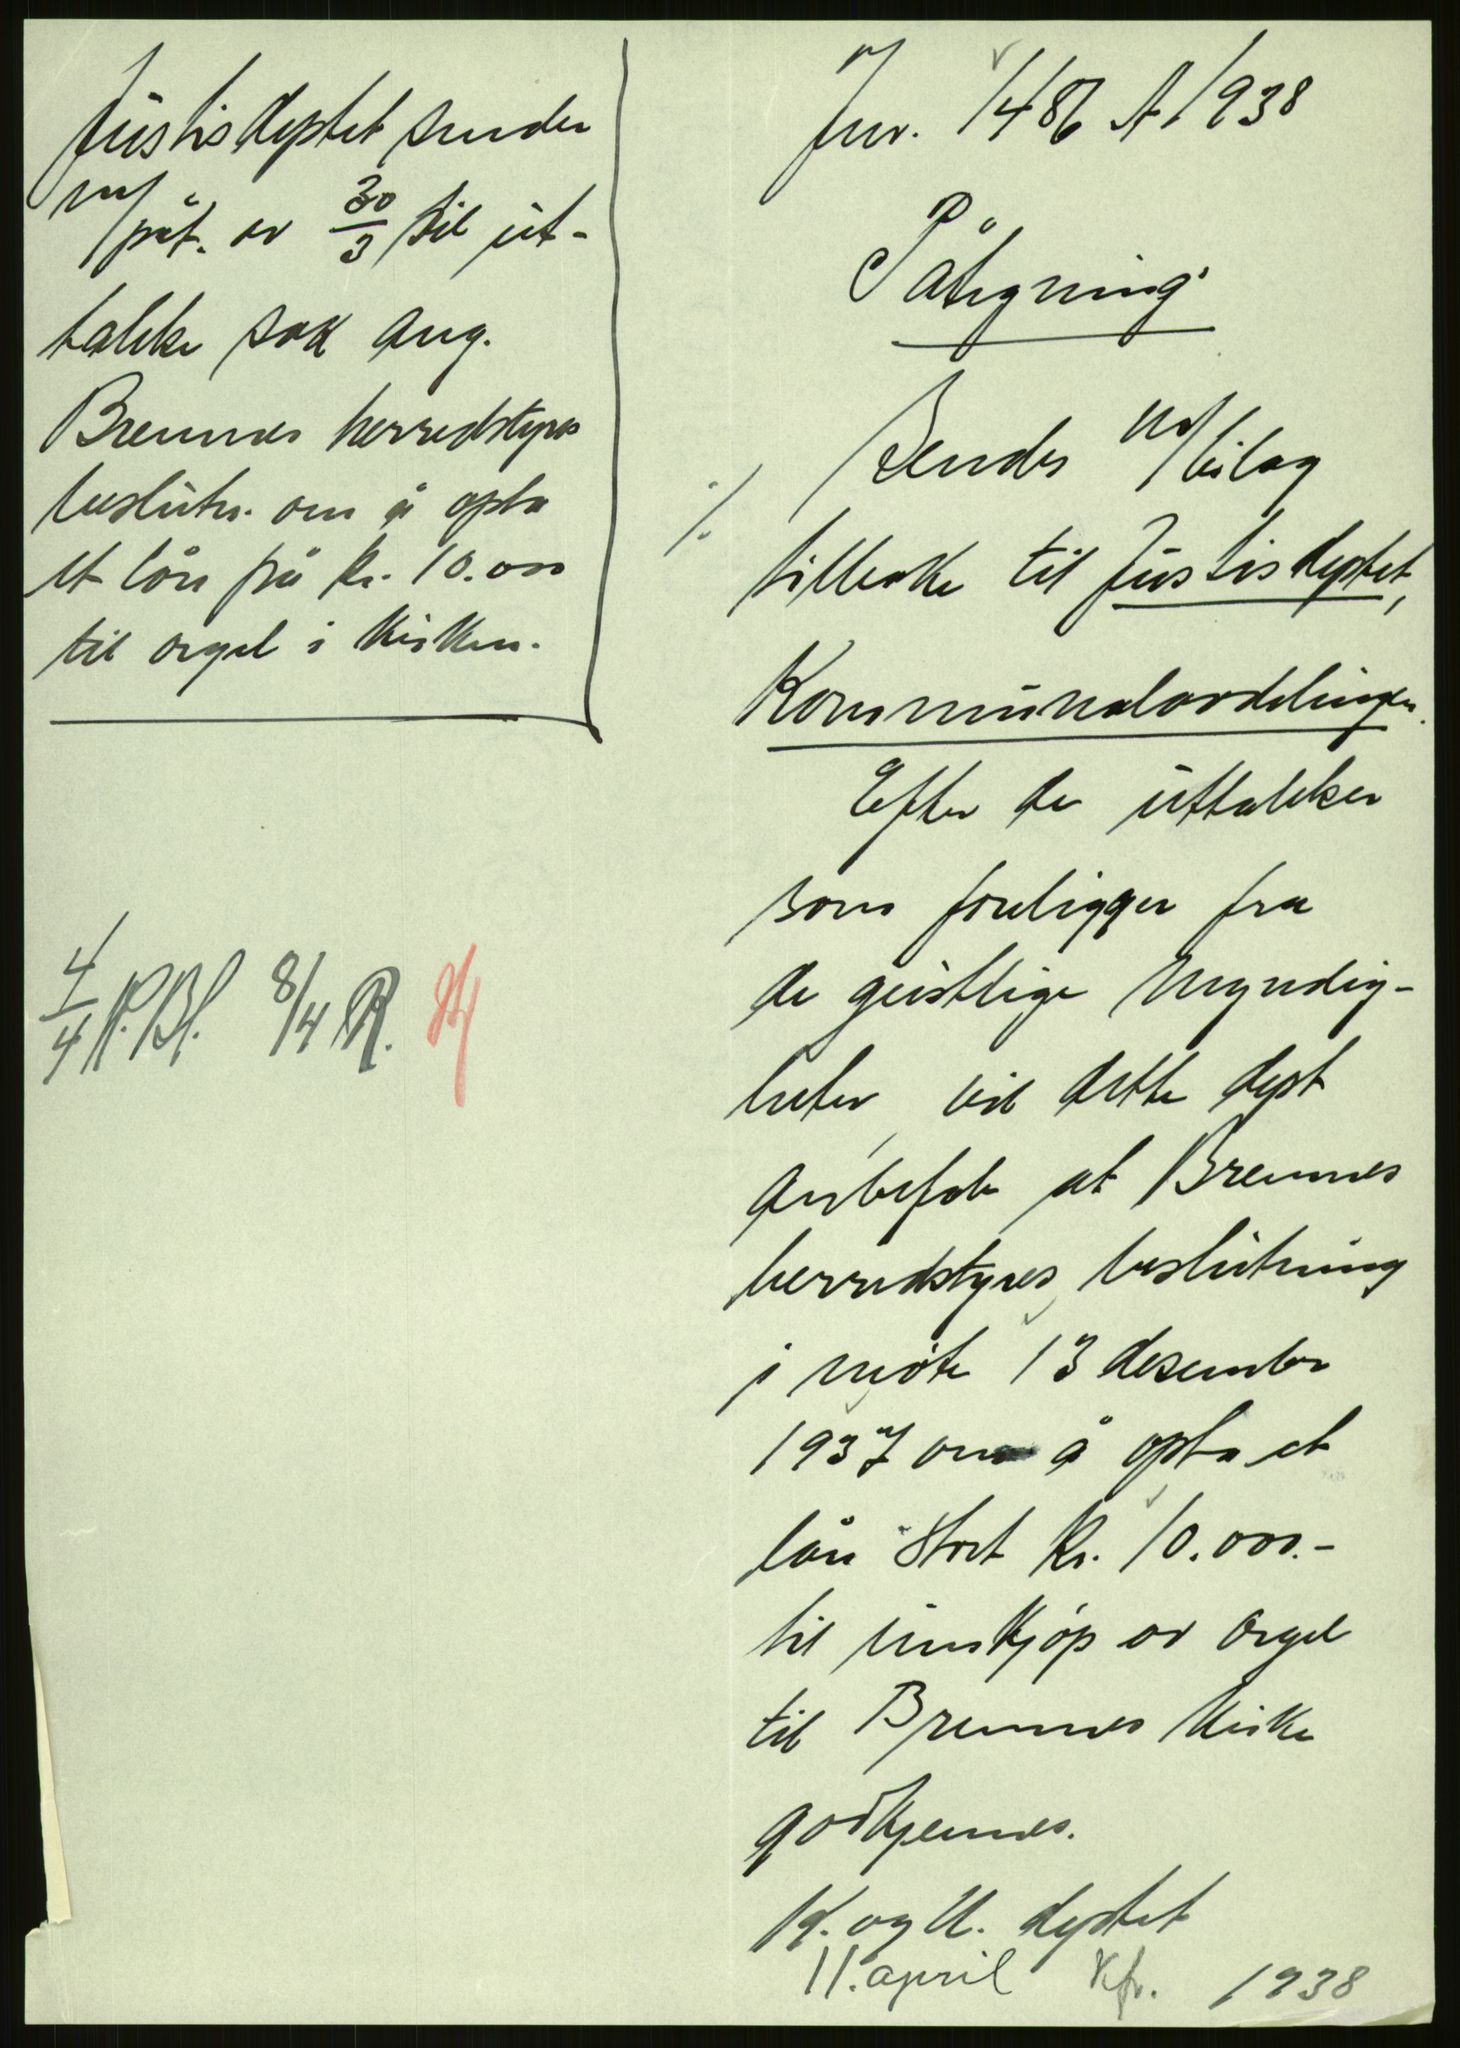 Justisdeptet sender
m/påt. av 30/3 til ut-
talelse sak ang.
Bremnes herredstyres
beslutn. om å opta
et lån på kr. 10.000
til orgel i kirken.
4/4 8/4 R.
Jnr. 1486 A 1938
Påtegning
Sendes m/bilag
./.
tilbake til Justisdeptet,
Kommunalavdelingen.
Efter de uttalelser
som foreligger fra
de geistlige myndig-
heter, vil dette dept
anbefale at Bremnes
herredstyres beslutning
i møte 13 desember
1937 om å opta et
lån stort kr. 10.000.-
til innkjøp av orgel
til Bremnes kirke
godkjennes.
K. og U. deptet
11. april Kfr. 1938